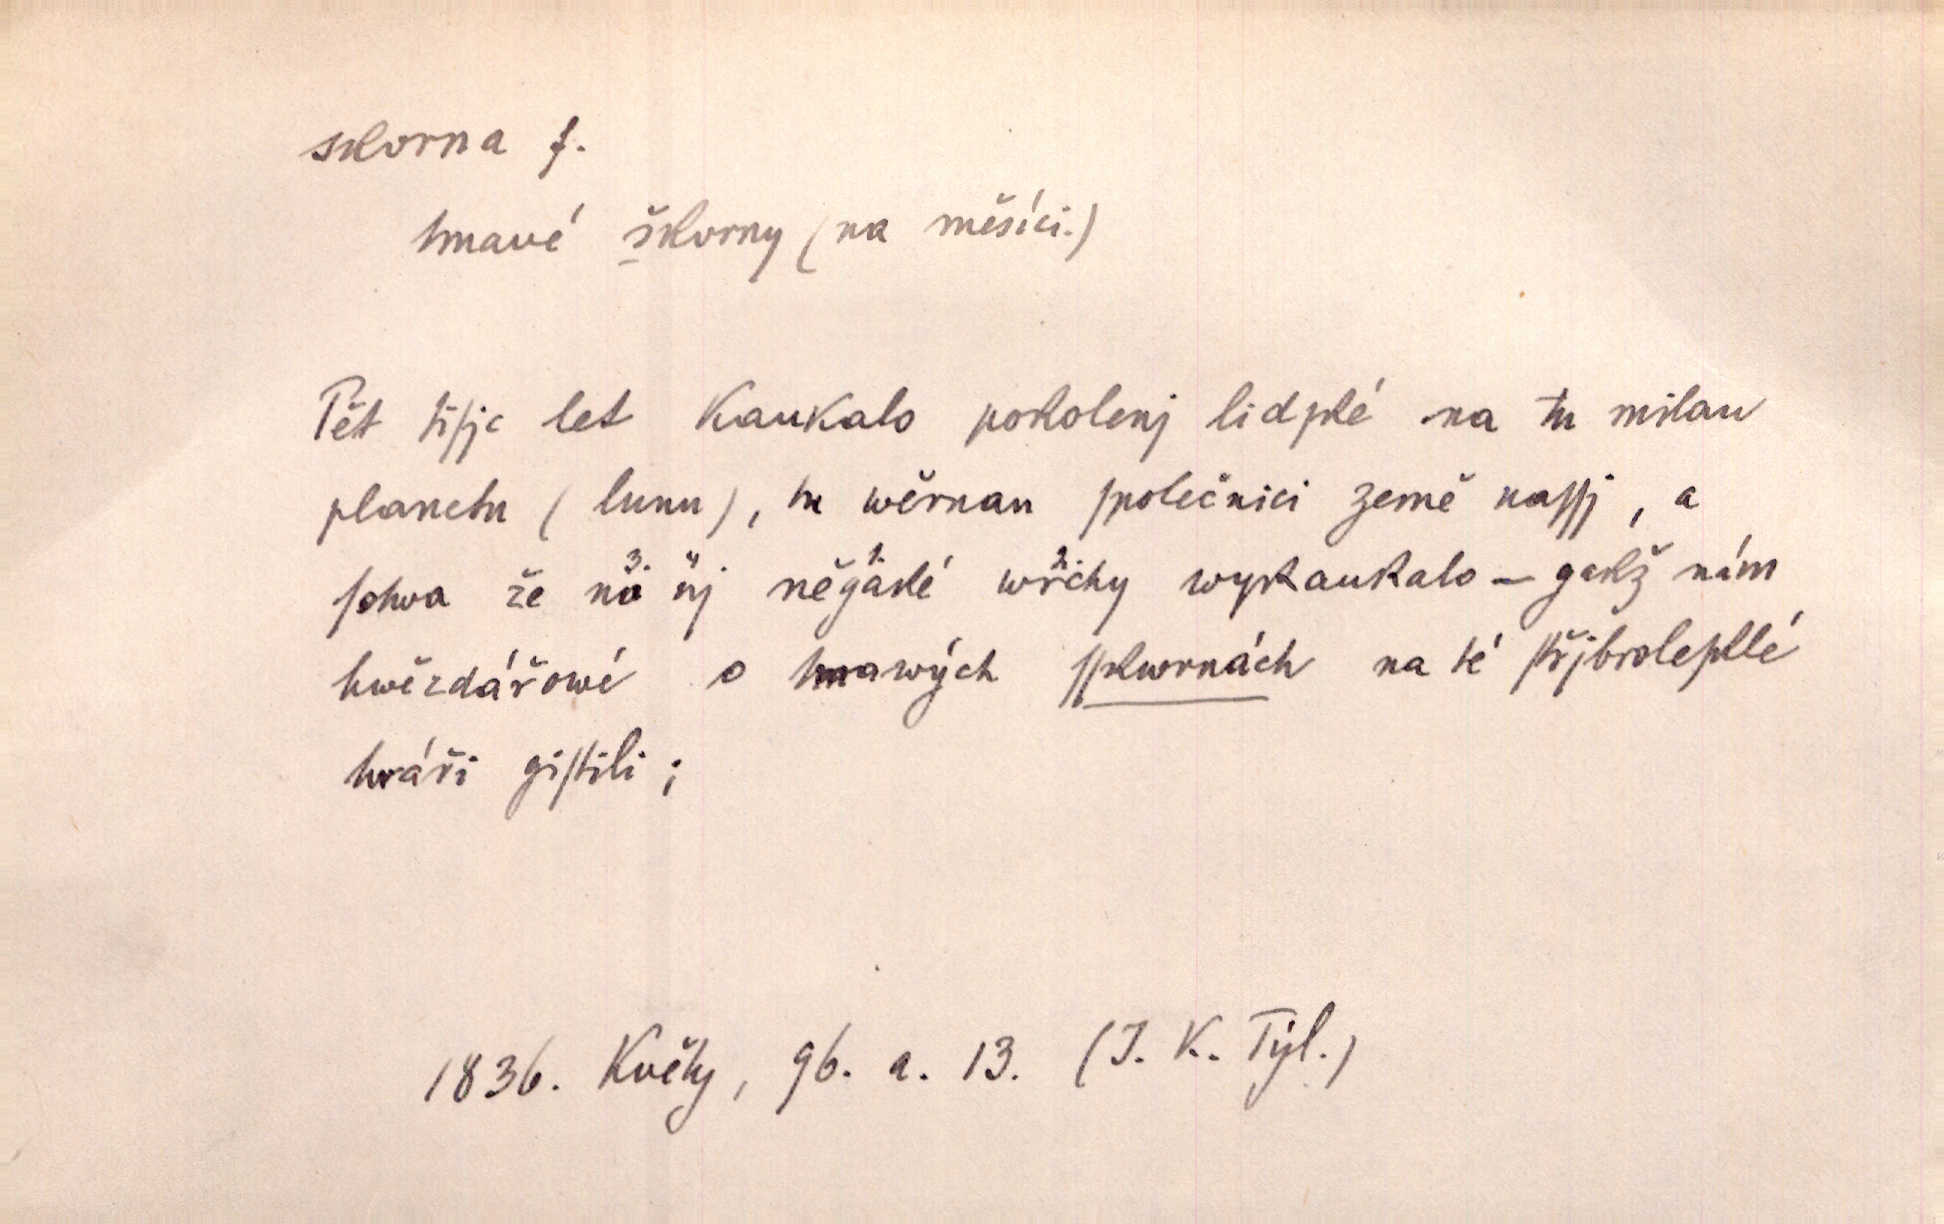 skorna f.
tmavé škorny (na měsíci.)
Pět tiſjc let kaukalo pokolenj lidſké na tu milau
planetu (lunu), tu wěrnau ſpolečnici země naſſj, a
ſotva že na nj něgaké wrchy wykaukalo – gakž nám
hwězdářowé o tmawých ſſkwornách na té ſtřjbroleſklé
tváři giſtili;
1836. Květy, 96. a. 13. (J. K. Tyl.)